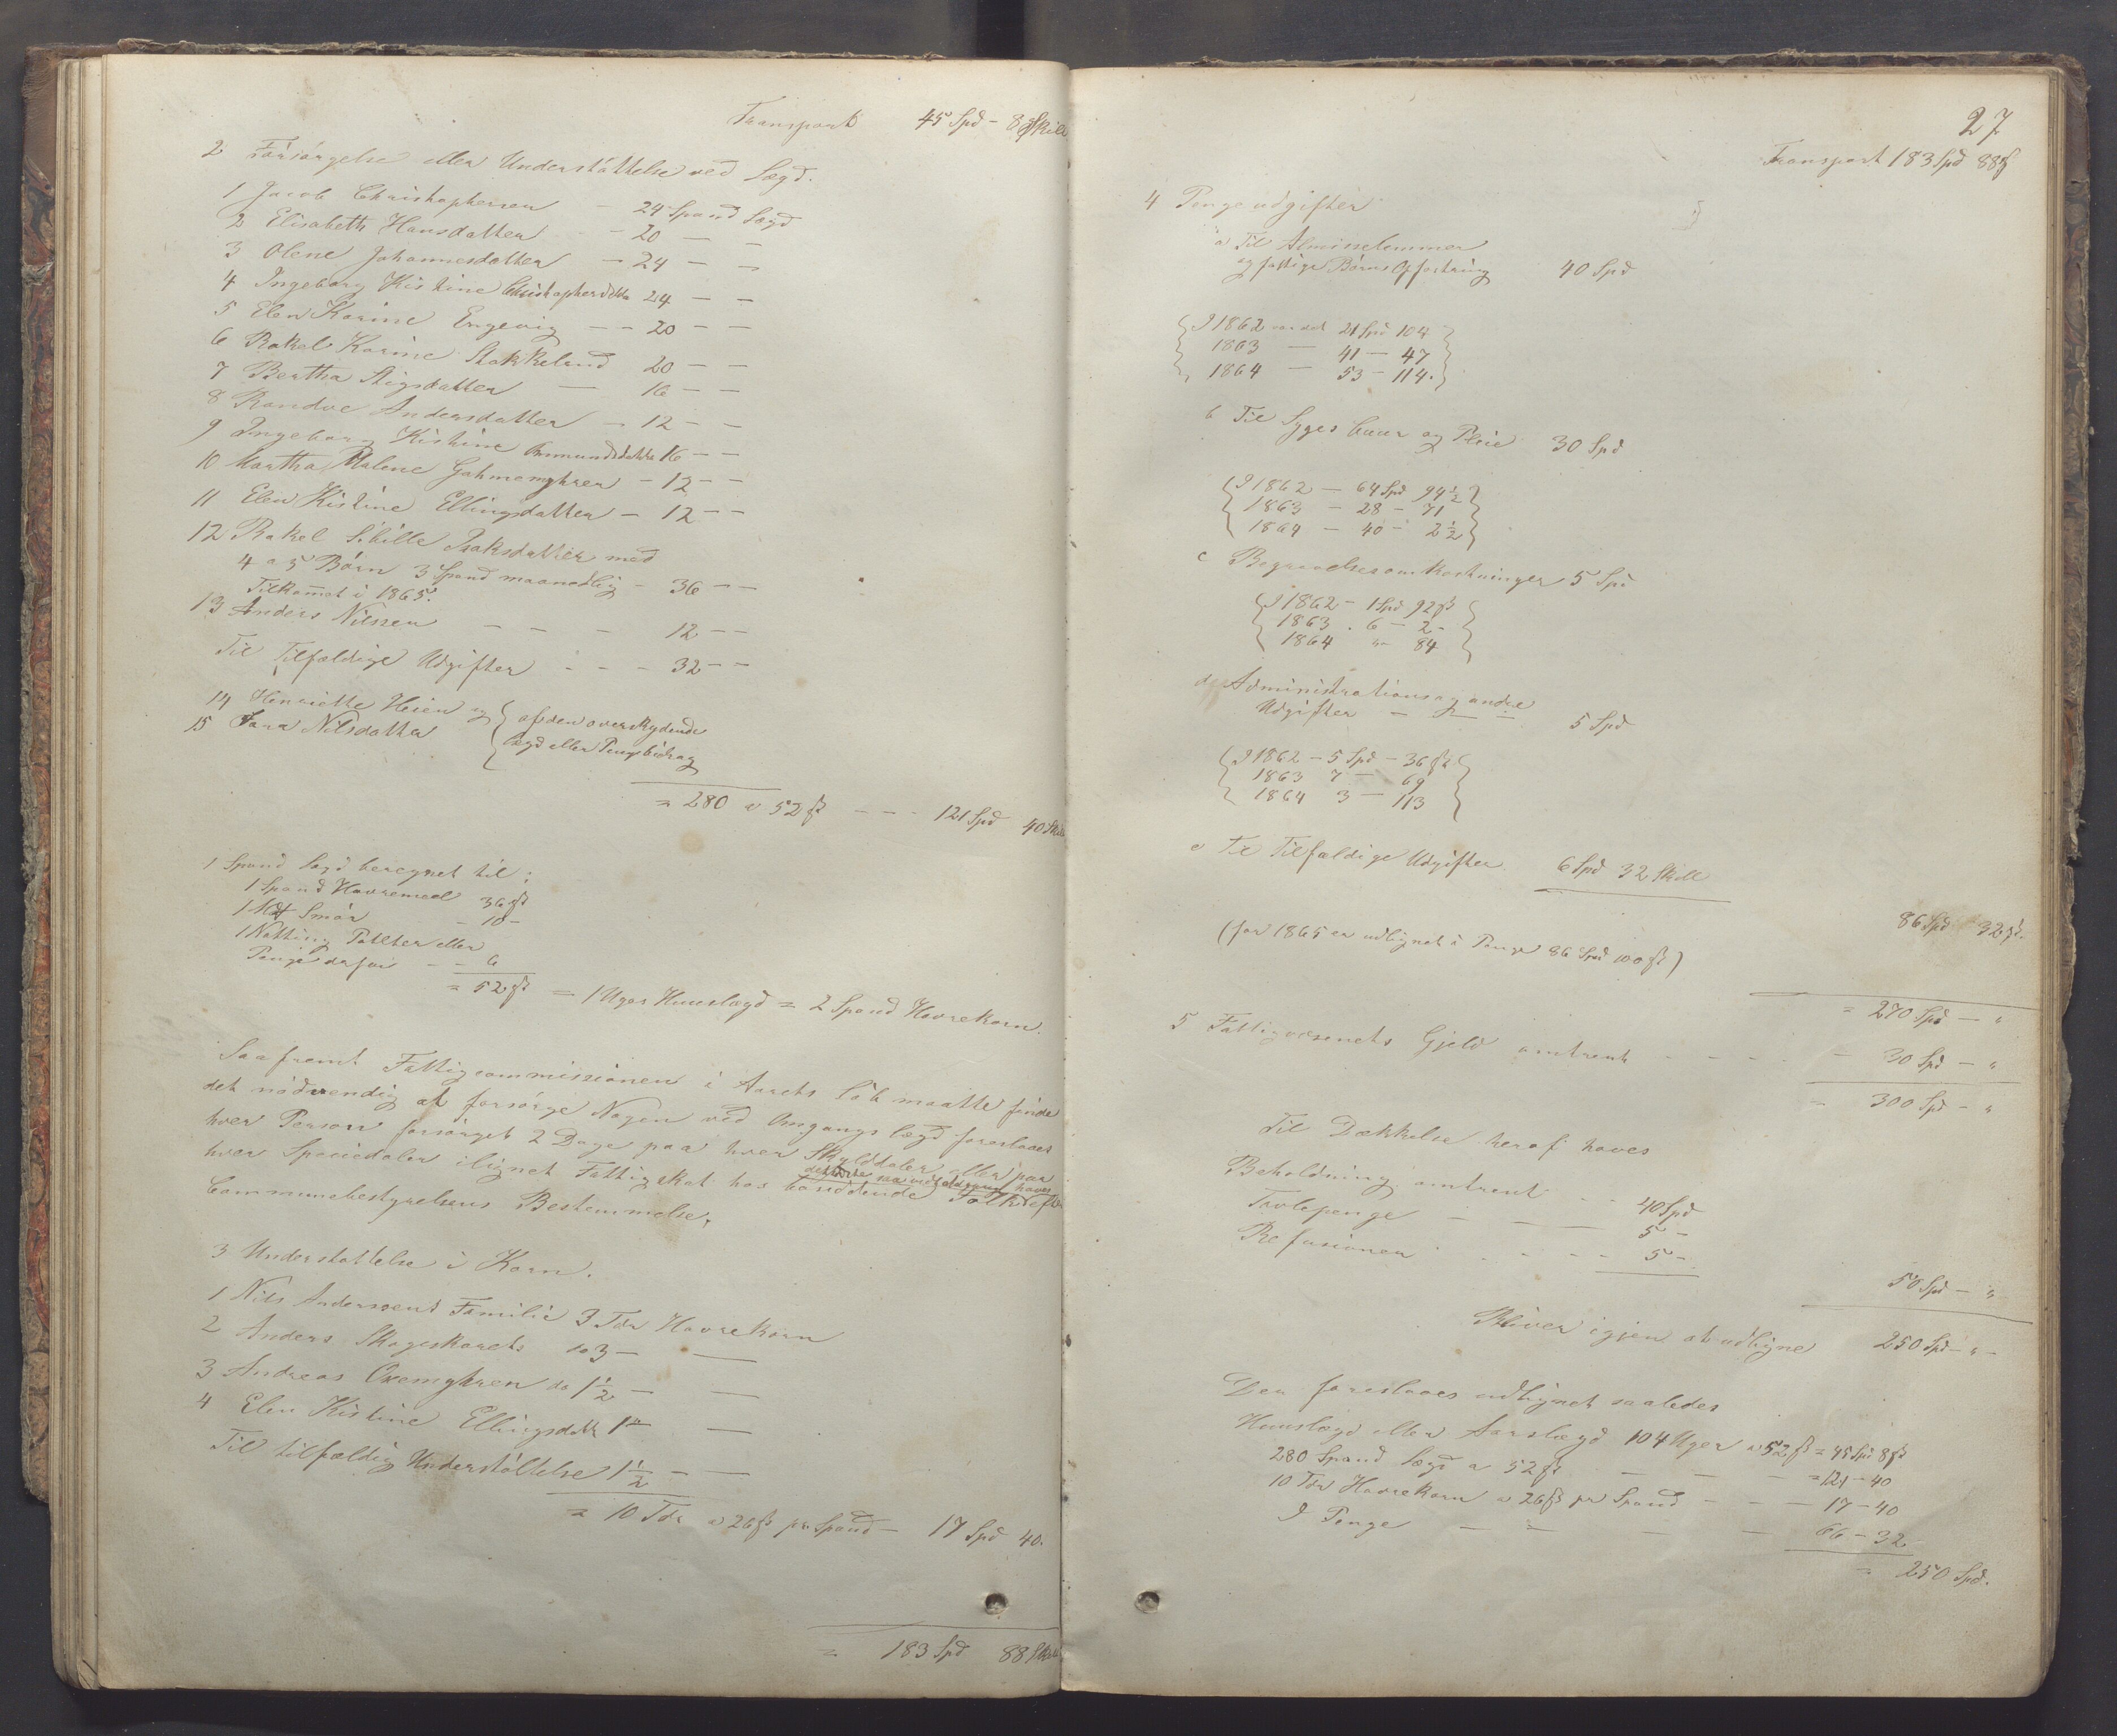 Transport 45 Spd - 8 Skill
2 Forsørgelse eller Understøttelse ved Lægd.
1 Jacob Christophersen - 24 Spand Lægd
2 Elisabeth Hansdatter - 20 - -
3 Olene Johannesdatter - 24 - -
4 Ingeborg Kistine Christophersdtr 24 - -
5 Elen Karine Engevig - - 20 - -
6 Rakel Karine Stokkeland 20 - -
7 Bertha Stigsdatter - 16 - -
8 Randve Andersdatter - 12 - -
9 Ingeborg Kistine Ommundsdatter 16 - -
10 Martha Malene - 12 - -
11 Elen Kistine Ellingsdatter - 12 - -
12 Rakel Sibille Isaksdatter med
4 a 5 Børn 3 Spand maanedlig - 36 - -
Tilkommet i 1865.
13 Anders Nilssen - - - 12 - -
Til Tilfældige Udgifter - - - 32 - -
14 Henriette Heien og { af den overskydende
15 Jana Nilsdatter { lægd eller Pengebidrag
= 280 a 52 ß - - - 121 Spd 40 Skill
1 Spand Lægd beregnet til:
1 Spand Havremeel 36 ß
1 Smør - 10 -
1 Potteter eller
Penge derfor - - 6
= 52 ß = 1 Uges Huuslægd = 2 Spand Havrekorn.
Saafremt Fattigcommissionen i Aarets Løb maatte finde
det nødvendig at forsørge Nogen ved Omgangslægd foreslaaes
hver Person forsørget 2 Dage paa hver Skylddaler eller paa
hver Speciedaler ilignet Fattigskat hos Folk efter
Communebestyrelsens Bestemmelse.
3 Understøttelse i Korn.
1 Nils Anderssens Familie 3 Tdr Havrekorn
2 Anders Skogeskarets do 3 - -
3 Andreas Oxemyhren do 1 1/2 - -
4 Elen Kistine Ellingsdatt 1 - -
Til tilfældig Understøttelse 1 1/2 - -
= 10 Tdr a 26 ß pr Spand - 17 Spd 40.
= 183 Spd 88 Skill
27
Transport 183 Spd 88 ß
4 Pengeudgifter
a Til Almisselemmer
og fattige Børns Opfostring 40 Spd
{ I 1862 21 Spd 104 }
{ 1863 - 41 - 47 }
{ 1864 - 53 - 114. }
b Til Syges Cuur og Pleie 30 Spd
{ I 1862 - 64 Spd 94 1/2 }
{ 1863 - 28 - 71 }
{ 1864 - 40 - 2 1/2 }
c Begravelsesomkostninger 5 Spd
{ I 1862 - 1 Spd 92 ß }
{ 1863 . 6 - 2 - }
{ 1864 " - 84 }
d Administrations og andre
Udgifter - - - 5 Spd
{ I 1862 - 5 Spd - 36 ß }
{ 1863 7 - 69 }
{ 1864 3 - 113 }
e Til Tilfældige Udgifter 6 Spd 32 Skill
86 Spd 32 ß.
(for 1865 er udlignet i Penge 86 Spd 100 ß)
= 270 Spd - "
5 Fattigvæsenets Gjeld omtrent - - - - - 30 Spd - "
= 300 Spd - "
Til Dækkelse heraf haves
Beholdning omtrent - - 40 Spd
Tavlepenge - - - 5 -
Refusioner - - - - 5 -
50 Spd - "
Bliver igjen at udligne 250 Spd - " -
Der foreslaaes udlignet saaledes
Huuslægd eller Aarslægd 104 Uger a 52 ß = 45 Spd 8 ß
280 Spand Lægd a 52 ß - - - = 121 - 40
10 Tdr Havrekorn a 26 ß pr Spand - - - 17 - 40
I Penge - - - - 66 - 32
= 250 Spd.